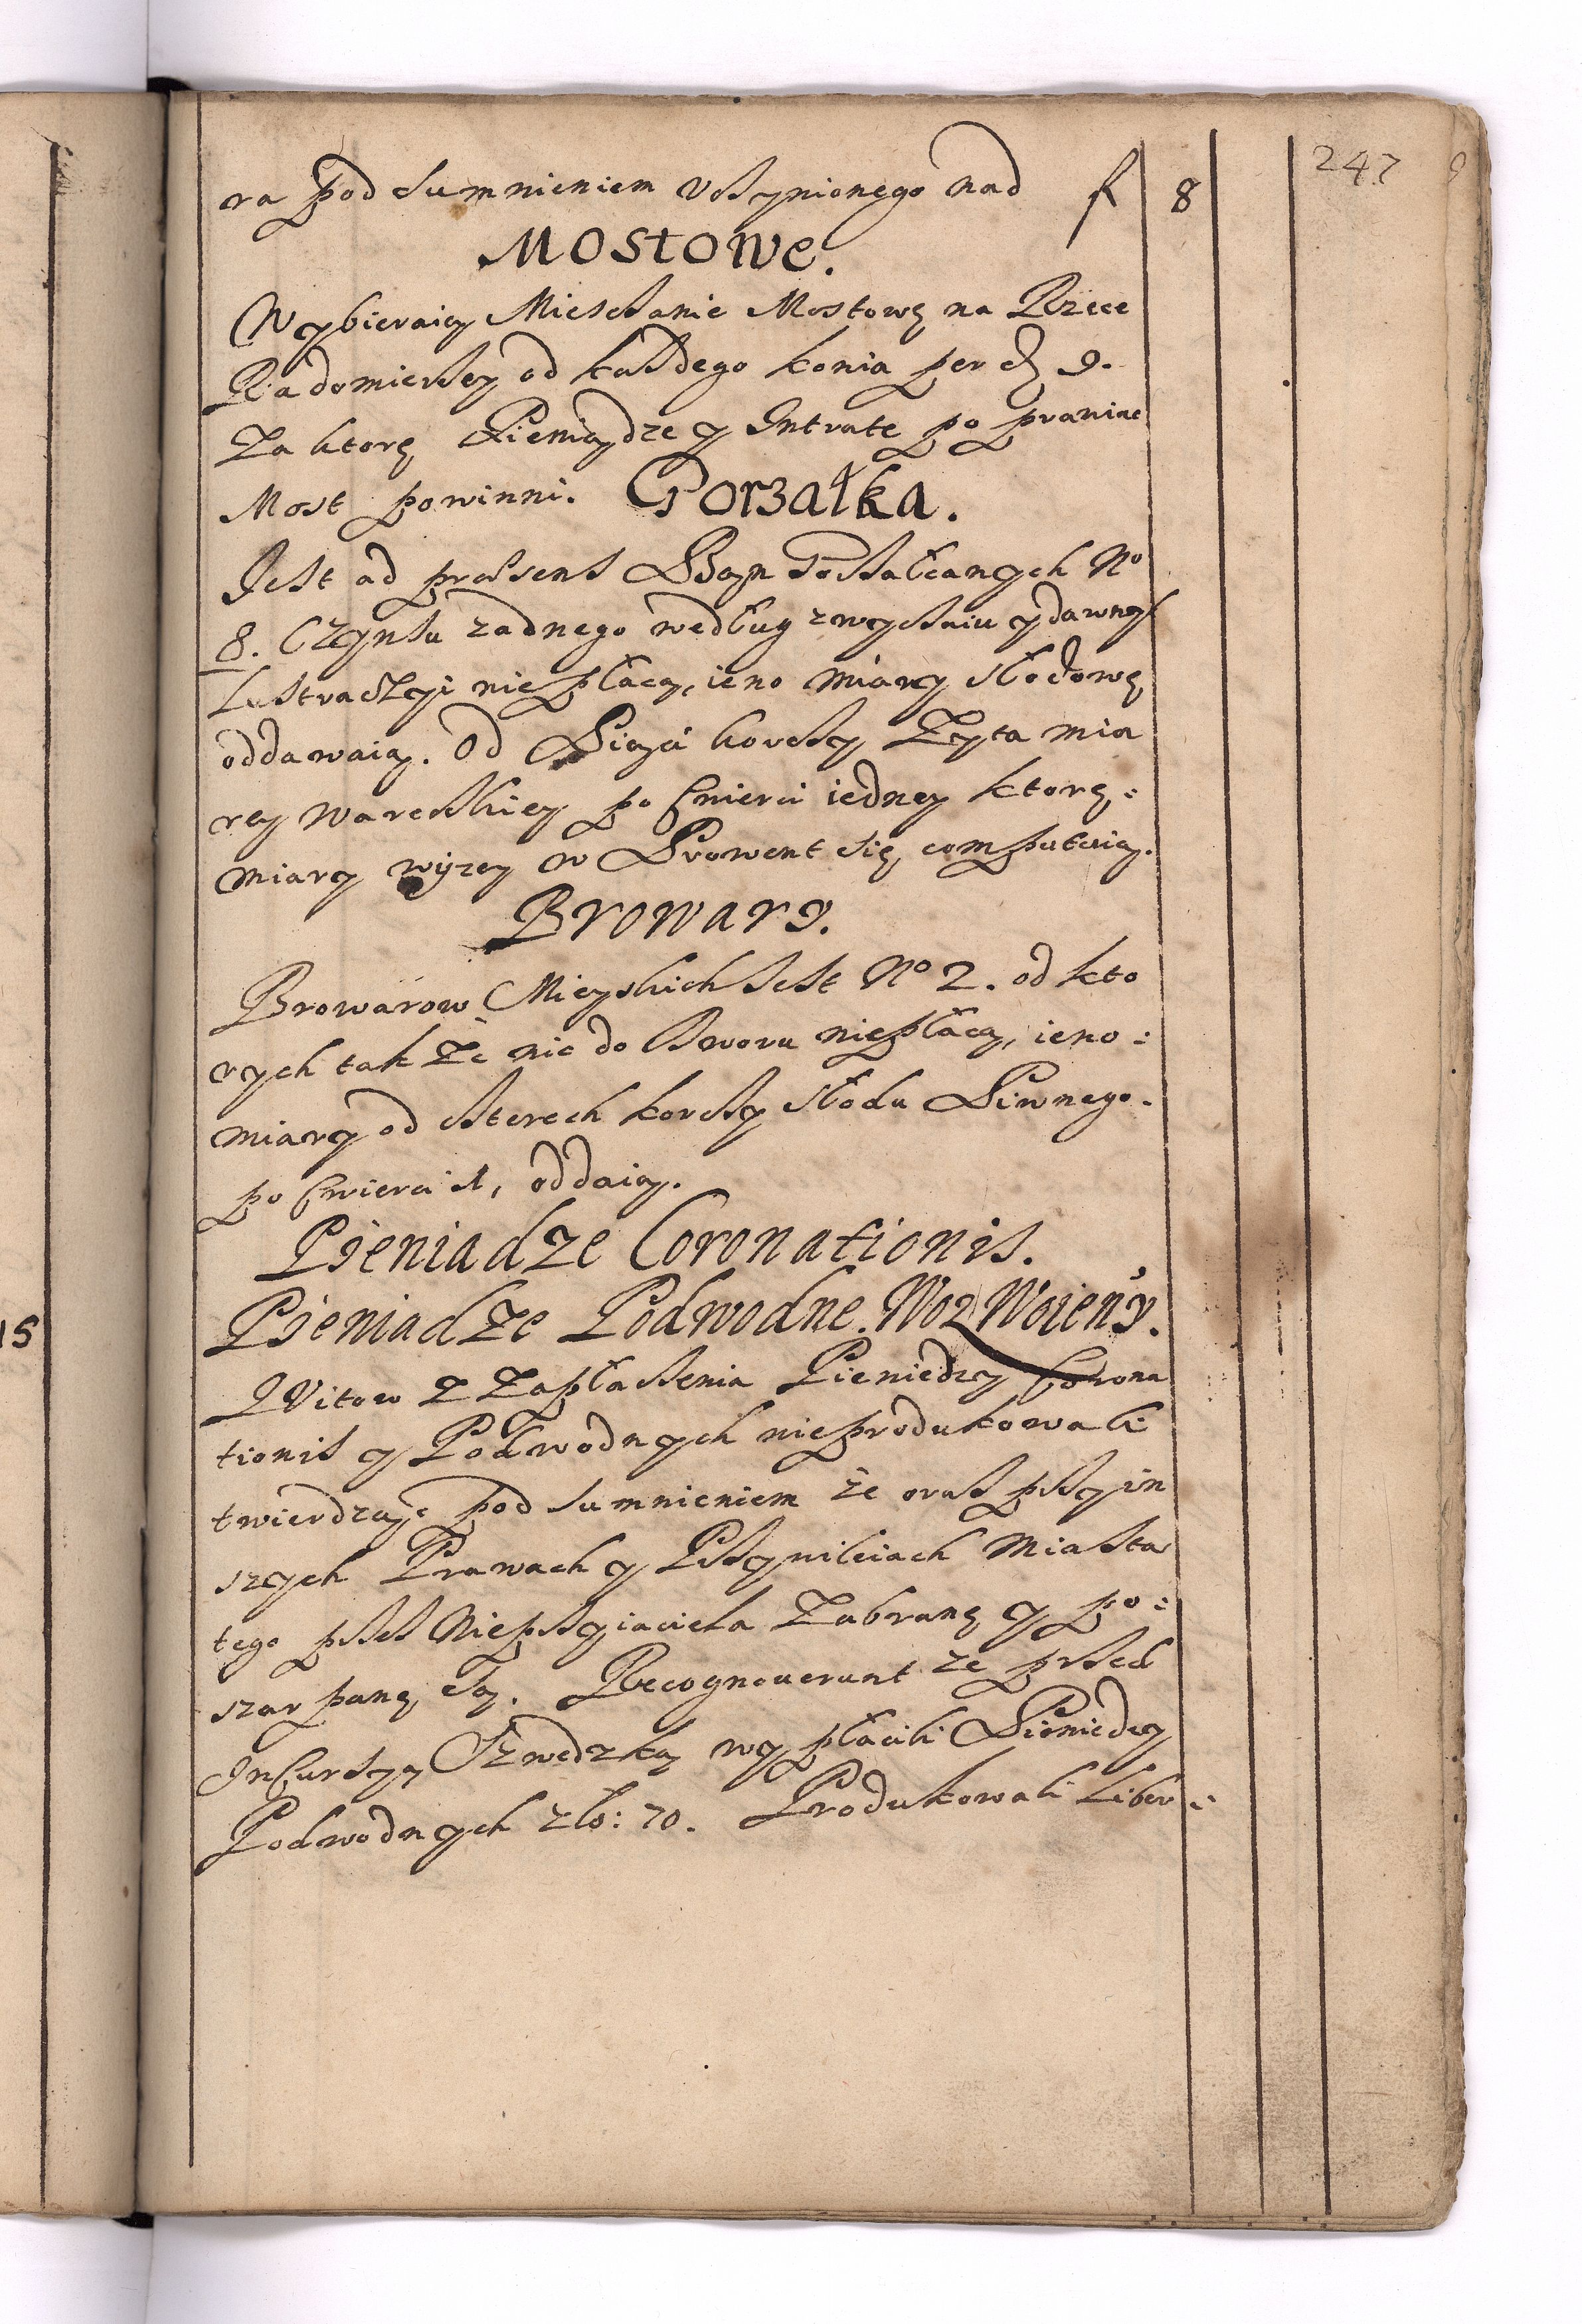 247
ra pod sumnieniem uczynionego nad f 8
Mostowe.
Wybieraią Mieszczanie Mostowę na Rzece
Radomierzy od każdego konia per 9.
Za ktorę Pieniądze y Intratę poprawiac
Most powinni. Gorzałka.
Jest ad praesens Bań Gorzałczanych No
8. Czynszu zadnego według zwyczaiu y dawnych
lustraczyi nie płacą, ieno miary słodowę
oddawaią. Od Pięci korcy Zyta mia
rey wareckiey po cwierci iedney ktorę:
miary wyzey w Prowent się computuią.
Browary.
Browarow Mieyskich Jest No 2. od kto
rych tak Ze nic do dworu niepłacą, ieno:
miary od czterech korcy słodu Piwnego.
po cwierci 1, oddaią.
Pieniadze Coronationis.
Pieniadze Podwodne. Woz Woienny.
QVitow Z Zapłacenia Pieniedzy Corona
tionis y Podwodnych nieprodukowali
twierdząc pod sumnieniem że oraz przy in
szych Prawach y Przywileiach Miasta
tego przez Nieprzyiaciela Zabranę y po:
szarpanę są. Recognoverunt ze przed
Incursyą Szwedzką wypłacili Pieniedzy
Podwodnych zło: 70. Produkowali liber:
15